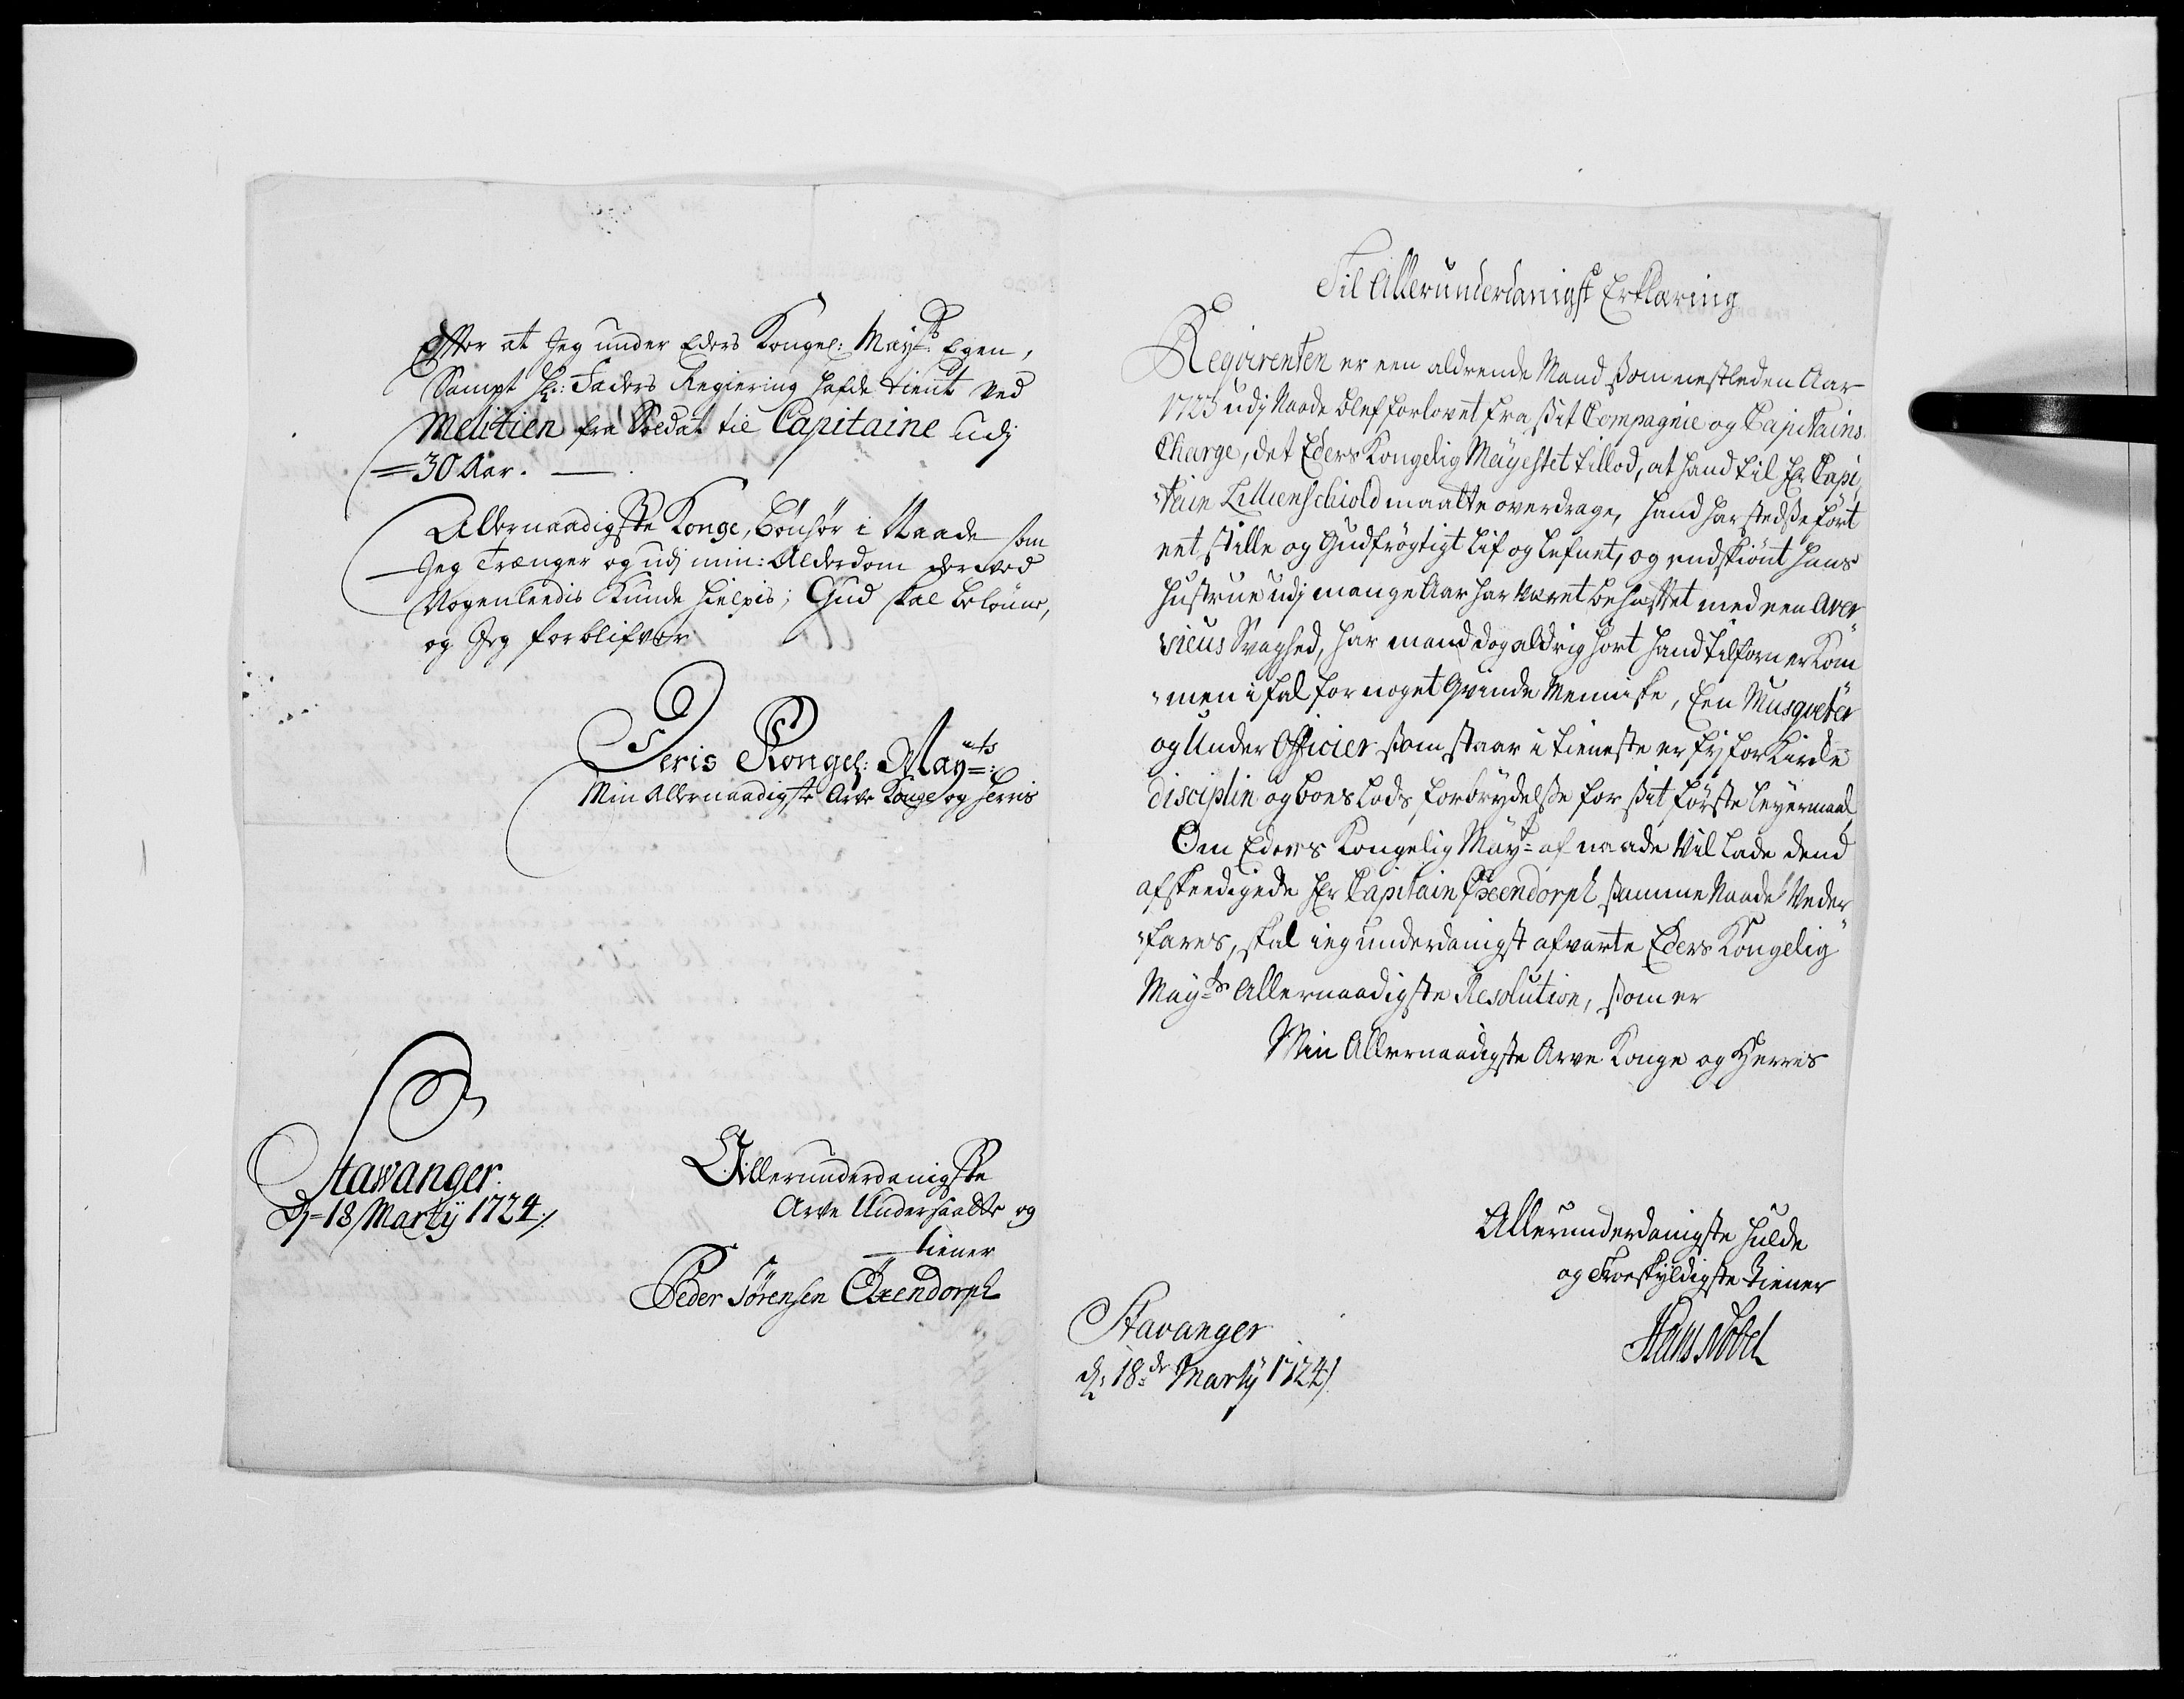 Efter at Jeg under Eders Kongel: May:ts Egen,
Sampt Hr: Faders Regiering hafde tient ved
Melitien fra Soldat til Capitaine udj
=30 Aar.
Allernaadigste Konge, bønhør i Naade som
Jeg Trænger og udj min: Alderdom derved
Nogenleedis Kunde hielpis; Gud skal belønne,
og Jeg forblifver
Deris Kongel: May=ts:
Min Allernaadigste Arve Konge og Herris
Stawanger.
D=18 Martij 1724./
Allerunderdanigste
Arve Undersaatte og
tiener
Peder Sørensen Oxendorph
Til Allerunderdanigst Erklæring
Reqvirenten er een aldrende Mand som nestleden Aar
1723 udj Naade blef forlovet fra sit Compagnie og Capitains
Charge, det Eders Kongelig Mayestet tillod, at hand til Hr Capi
tain Lillienschiold maatte overdrage, hand har stedse ført
eet stille og Gudfrøgtigt lif og lefnet, og endskiønt hans
hustrue udj mange Aar har været behæftet med een
Svaghed, har mand dog aldrig hørt hand tilforn er Kom
men i fal for noget Qvinde Menniske, Een Musqveter
og Under Officier som staar i tieneste er frj for Kirke
disciplin og boeslods forbrydelse for sit første leyermaal
Om Eders Kongelig May:t af naade Vil lade dend
afskeedigede Hr Capitain Oxendorph samme Naade Veder
fares, skal ieg underdanigst afvarte Eders Kongelig
May:ts Allernaadigste Resolution, som er
Min Allernaadigste Arve Konge og Herres
Allerunderdanigste hulde
og Troeskyldigste tiener
Hans Nobel
Stavanger
d: 18de Martij 1724/